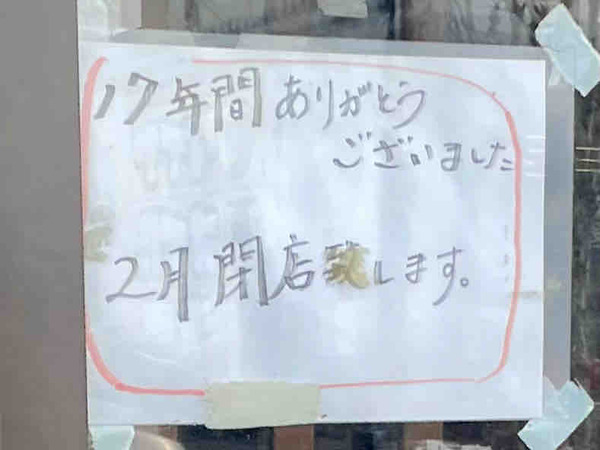 17年間ありがとう
ございました
2月閉店致します。